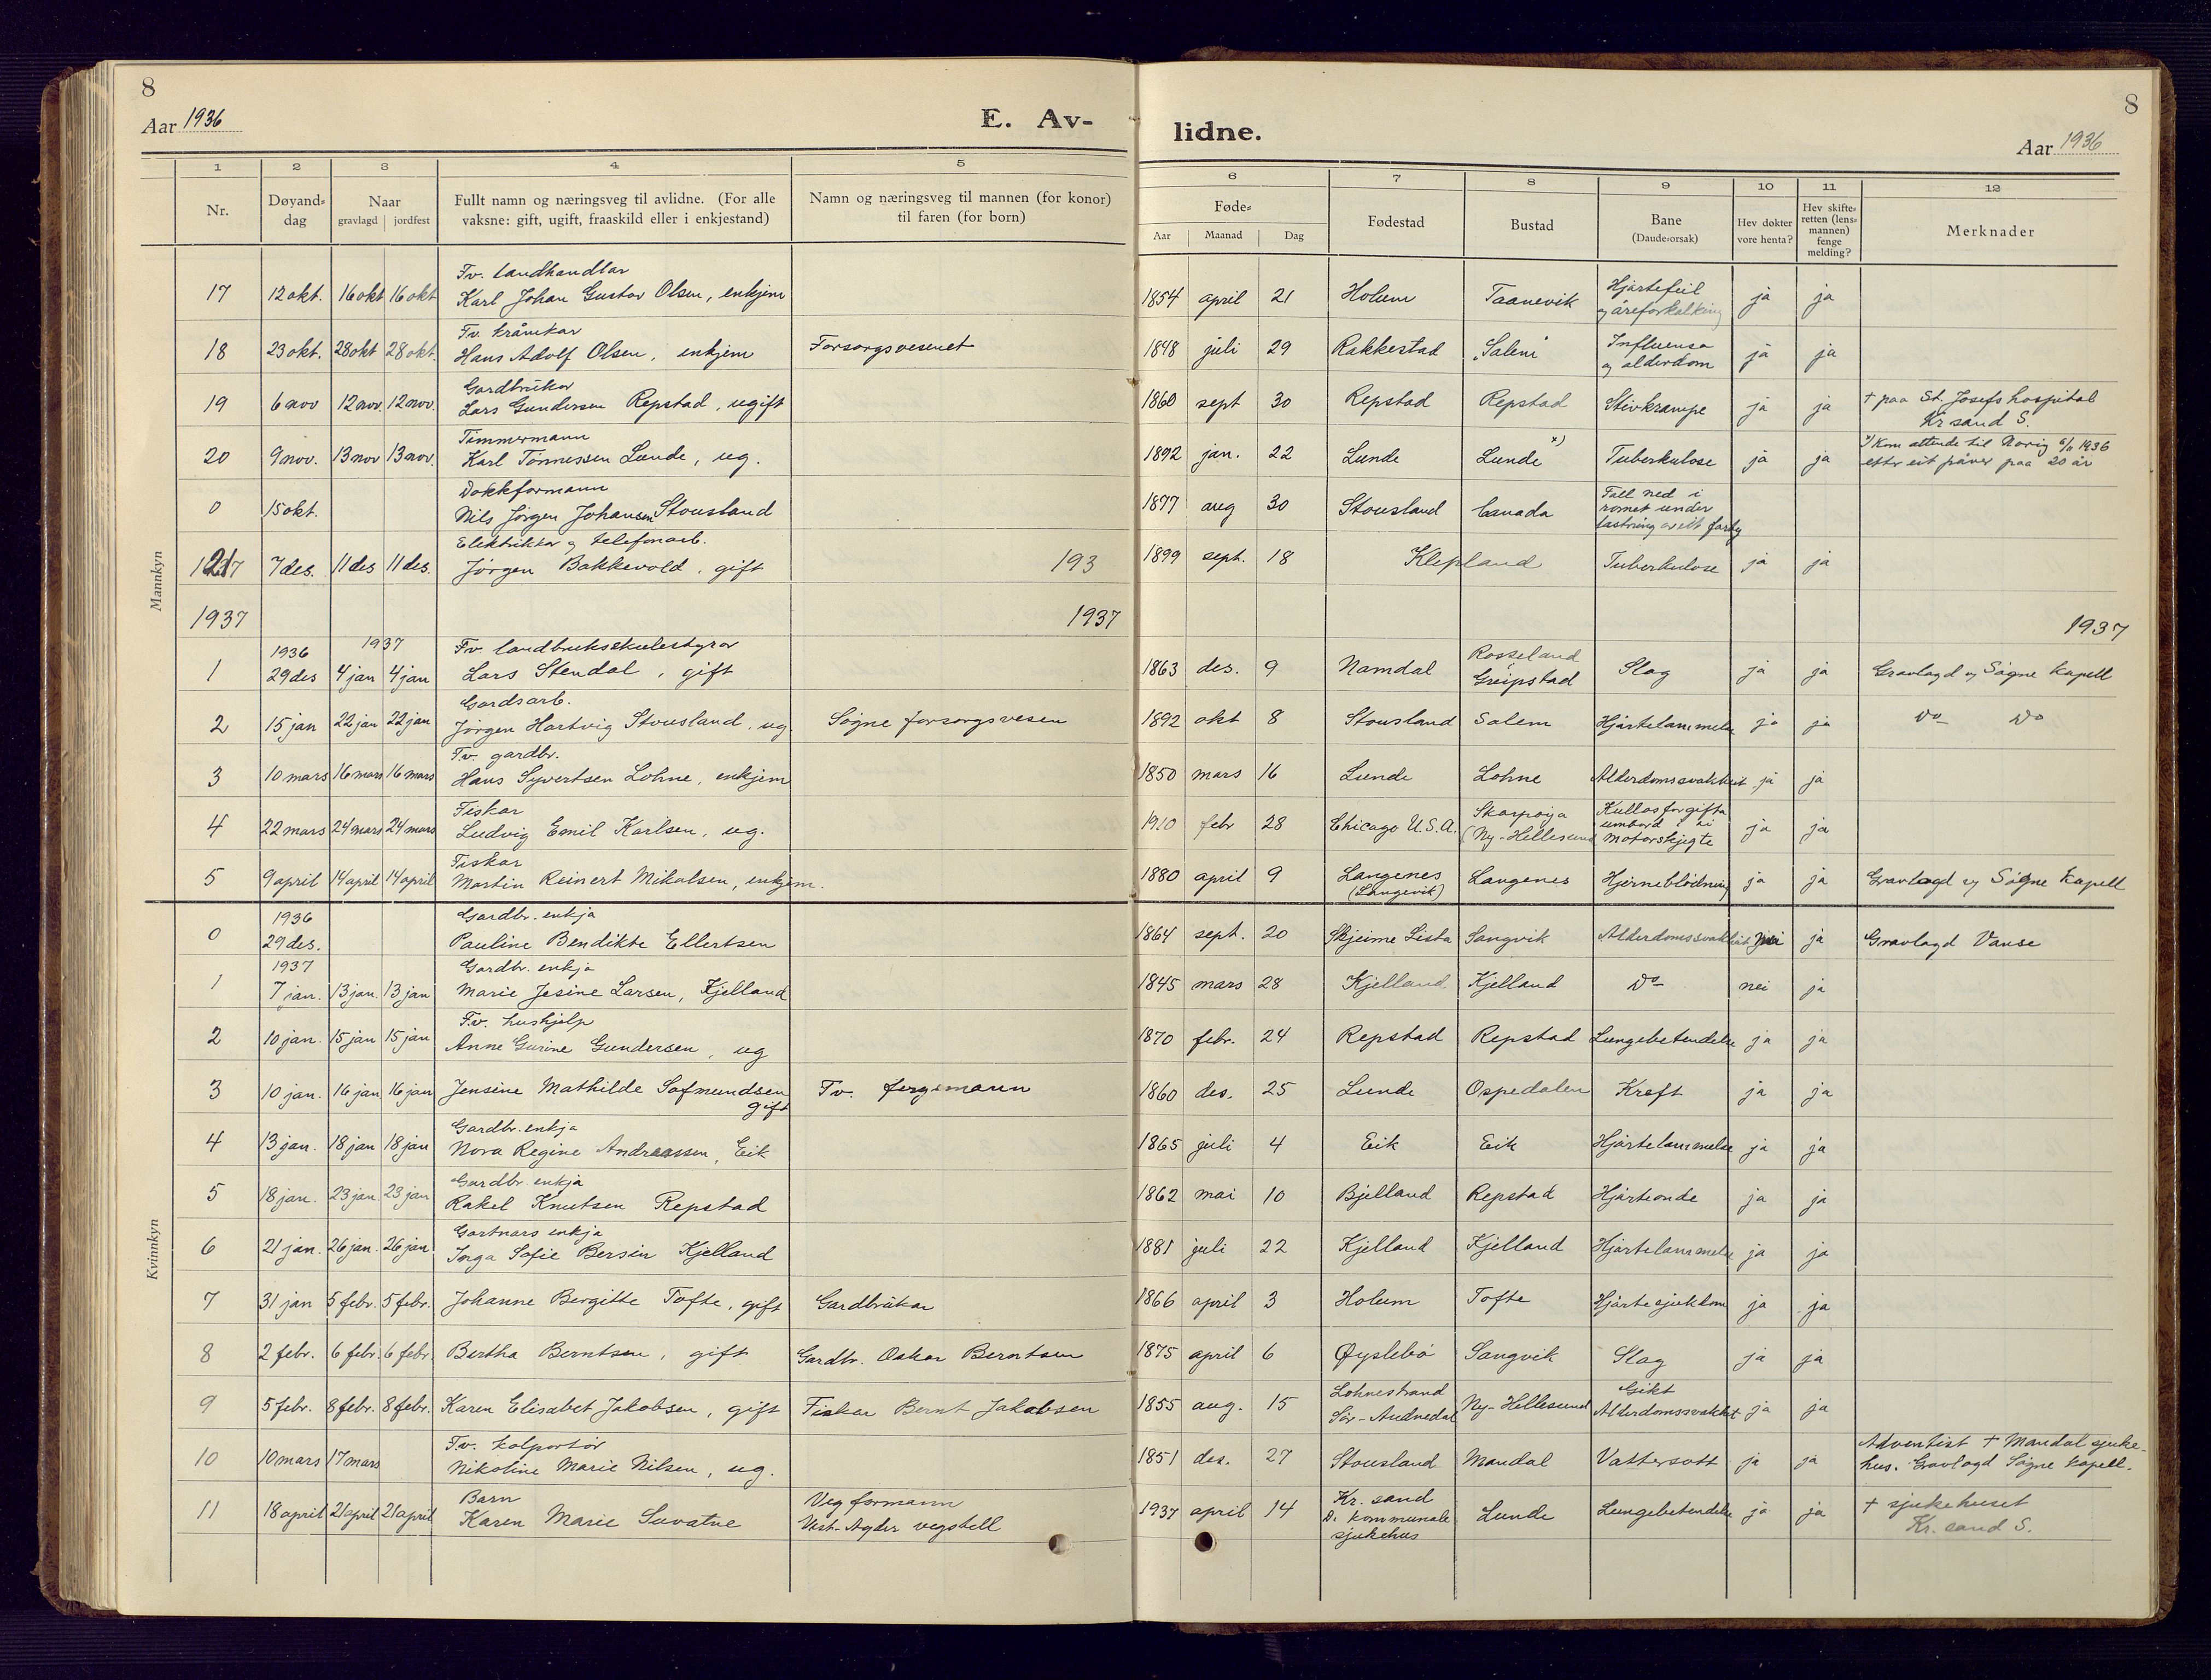 8
Aar 1936
E. Av-
lidne.
8
Aar 1936
1 2 3 4 5
6 7 8 9 10 11 12
Nr.
Døyand-
dag
Naar
gravlagd | jordfest
Fullt namn og næringsveg til avlidne. (For alle
vaksne: gift, ugift, fraaskild eller i enkjestand)
Namn og næringsveg til mannen (for konor)
til faren (for born)
Føde-
Aar Maanad Dag
Fødestad
Bustad
Bane
(Daude-orsak)
Hev dokter
vore henta?
Hev skifte-
retten (lens-
mannen)
fenge
melding?
Merknader
Mannkyn
Fv. landhandlar
17 12 okt. 16 okt 16 okt Karl Johan Gustav Olsen, enkjem 1854 april 21 Holum Taanevik Hjartefeil
og åreforkalking ja ja
Fv. kråmkar
18 23 okt. 28 okt 28 okt. Hans Adolf Olsen, enkjem Forsorgsvesenet 1848 juli 29 Rakkestad "Salem" Influensa
og alderdom ja ja
Gardbrukar
19 6 nov 12 nov. 12 nov. Lars Gundersen Repstad, ugift 1860 sept 30 Repstad Repstad Stivkrampe ja ja † paa St. Josefs hospital
Kr.sand S.
Timmermann
20 9 nov. 13 nov 13 nov. Karl Tønnessen Lunde, ug. 1892 jan. 22 Lunde Lunde x) Tuberkulose ja ja x) Kom attende til Norig 1936
etter eit fråver paa 20 år
Dokkformann
0 15 okt. Nils Jørgen Johansen Stousland 1877 aug 30 Stousland Canada Fall ned i
romet under
lastning av eit farty
Elektrikar og telefonarb.
21 7 des. 11 des 11 des. Jørgen Bakkevold, gift 193 1899 sept. 18 Klepland Tuberkulose ja ja
1937 1937 1937
1936 1937 Fv. landbruksskulestyrar
1 29 des 4 jan 4 jan Lars Stendal, gift 1863 des. 9 Namdal Rosseland
Greipstad Slag ja ja Gravlagd v/ Søgne kapell
Gardsarb.
2 15 jan 22 jan 22 jan Jørgen Hartvig Stousland, ug. Søgne forsorgsvesen 1892 okt 8 Stousland Salem Hjartelammelse ja ja Do Do
Fv. gardbr.
3 10 mars 16 mars 16 mars Hans Syvertsen Lohne, enkjem 1850 mars 16 Lunde Lohne Alderdomssvakheit ja ja
Fiskar
4 22 mars 24 mars 24 mars Ludvig Emil Karlsen, ug. 1910 febr 28 Chicago U.S.A. Skarpøya
(Ny-Hellesund Kullosforgifta
umbord i ei
motorskjøgte ja ja
Fiskar
5 9 april 14 april 14 april Martin Reinert Mikalsen, enkjem. 1880 april 9 Langenes
(Langevik) Langenes Hjerneblødning ja ja Gravlagd v/ Søgne kapell
Kvinnkyn
1936 Gardbr. enkja
0 29 des. Pauline Bendikte Ellertsen 1864 sept. 20 Skjeime Lista Sangvik Alderdomssvakheit nei ja Gravlagd Vanse
1937 Gardbr. enkja
1 7 jan. 13 jan. 13 jan Marie Jesine Larsen, Kjelland 1845 mars 28 Kjelland Kjelland Do nei ja
Fv. hushjelp
2 10 jan. 15 jan 15 jan Anne Gurine Gundersen, ug 1870 febr. 24 Repstad Repstad Lungebetendelse ja ja
3 10 jan. 16 jan 16 jan Jensine Mathilde Salmundsen
gift Fv. fergemann 1860 des. 25 Lunde Ospedalen Kreft ja ja
Gardbr. enkja
4 13 jan. 18 jan 18 jan Nora Regine Andreassen, Eik 1865 juli 4 Eik Eik Hjartelammelse ja ja
Gardbr. enkja
5 18 jan. 23 jan. 23 jan Rakel Knutsen Repstad 1862 mai 10 Bjelland Repstad Hjarteonde ja ja
Gartnars enkja
6 21 jan. 26 jan. 26 jan Inga Sofie Bersin Kjelland 1881 juli 22 Kjelland Kjelland Hjartelammelse ja ja
7 31 jan 5 febr. 5 febr. Johanne Bergitte Tofte, gift Gardbrukar 1866 april 3 Holum Tofte Hjartesjukdom ja ja
8 2 febr. 6 febr. 6 febr. Bertha Berntsen, gift Gardbr. Oskar Berntsen 1875 april 6 Øyslebø Sangvik Slag ja ja
9 5 febr. 8 febr. 8 febr. Karen Elisabet Jakobsen, gift Fiskar Bernt Jakobsen 1855 aug. 15 Lohnestrand
Sør-Audnedal Ny-Hellesund Gikt
Alderdomssvakhet ja ja
Fv. kolportør
10 10 mars 17 mars Nikoline Marie Nilsen, ug. 1851 des. 27 Stousland Mandal Vattersott ja ja Adventist † Mandal sjuke-
hus. Gravlagd Søgne kapell.
Barn
11 18 april 21 april 21 april Karen Marie Suvatne Vegformann
Vest-Agder vegstell 1937 april 14 Kr.sand
D. kommunale
sjukehus Lunde Lungebetendelse ja ja † sjukehuset
Kr.sand S.